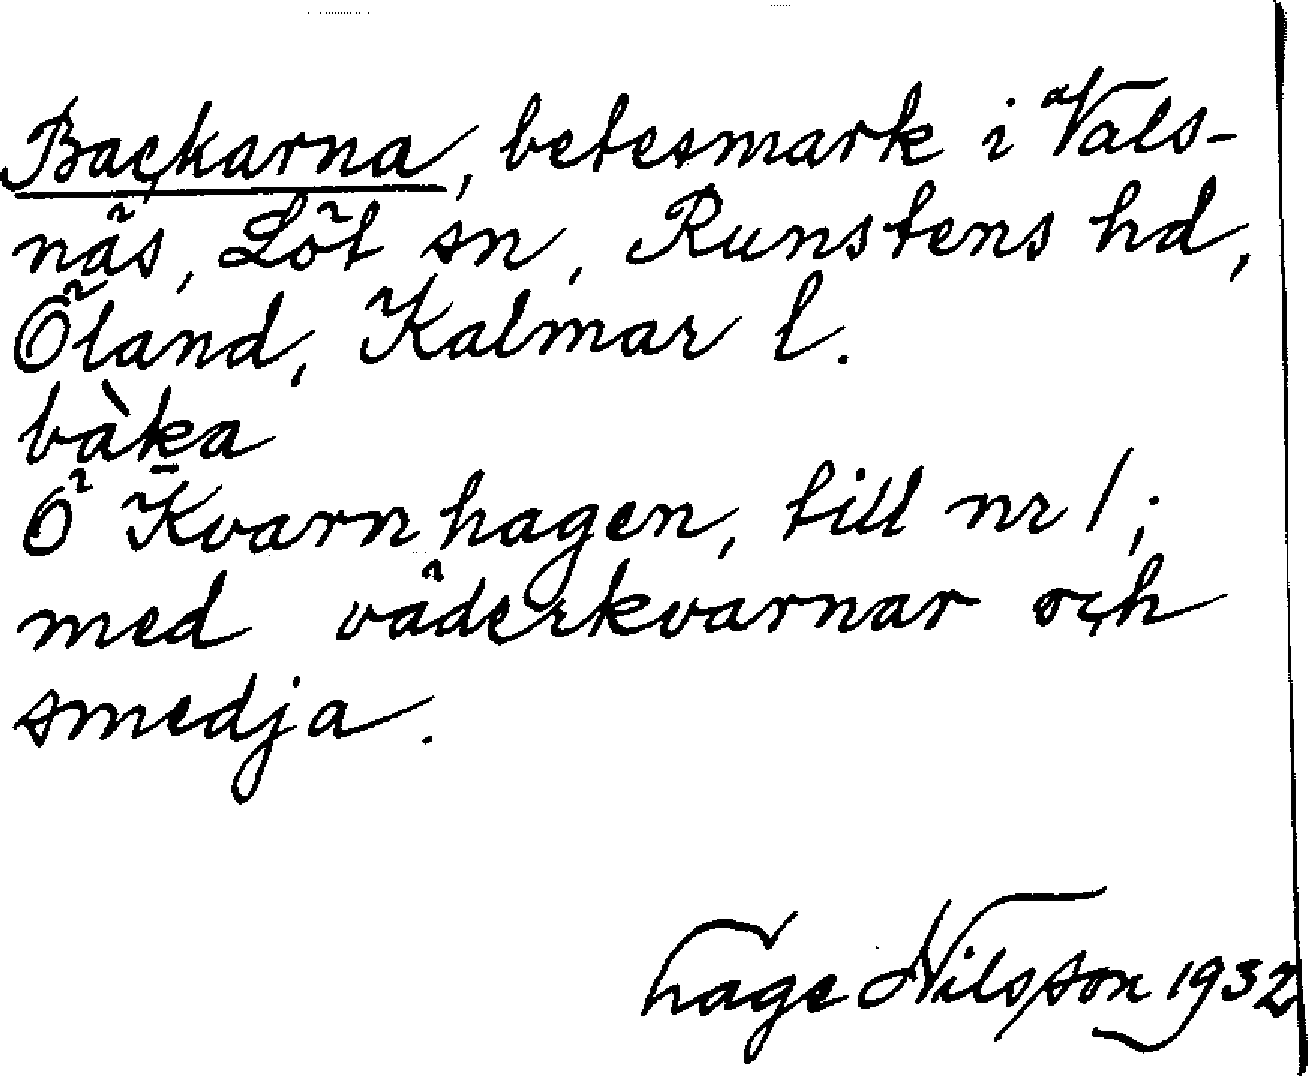 Backarna, betesmark i Vals-
näs, Löt sn, Runstens hd,
Öland, Kalmar l.
bàḵa
Ö Kvarnhagen, till nr 1;
med väderkvarnar och
smedja.
Tage Nilsson 1932